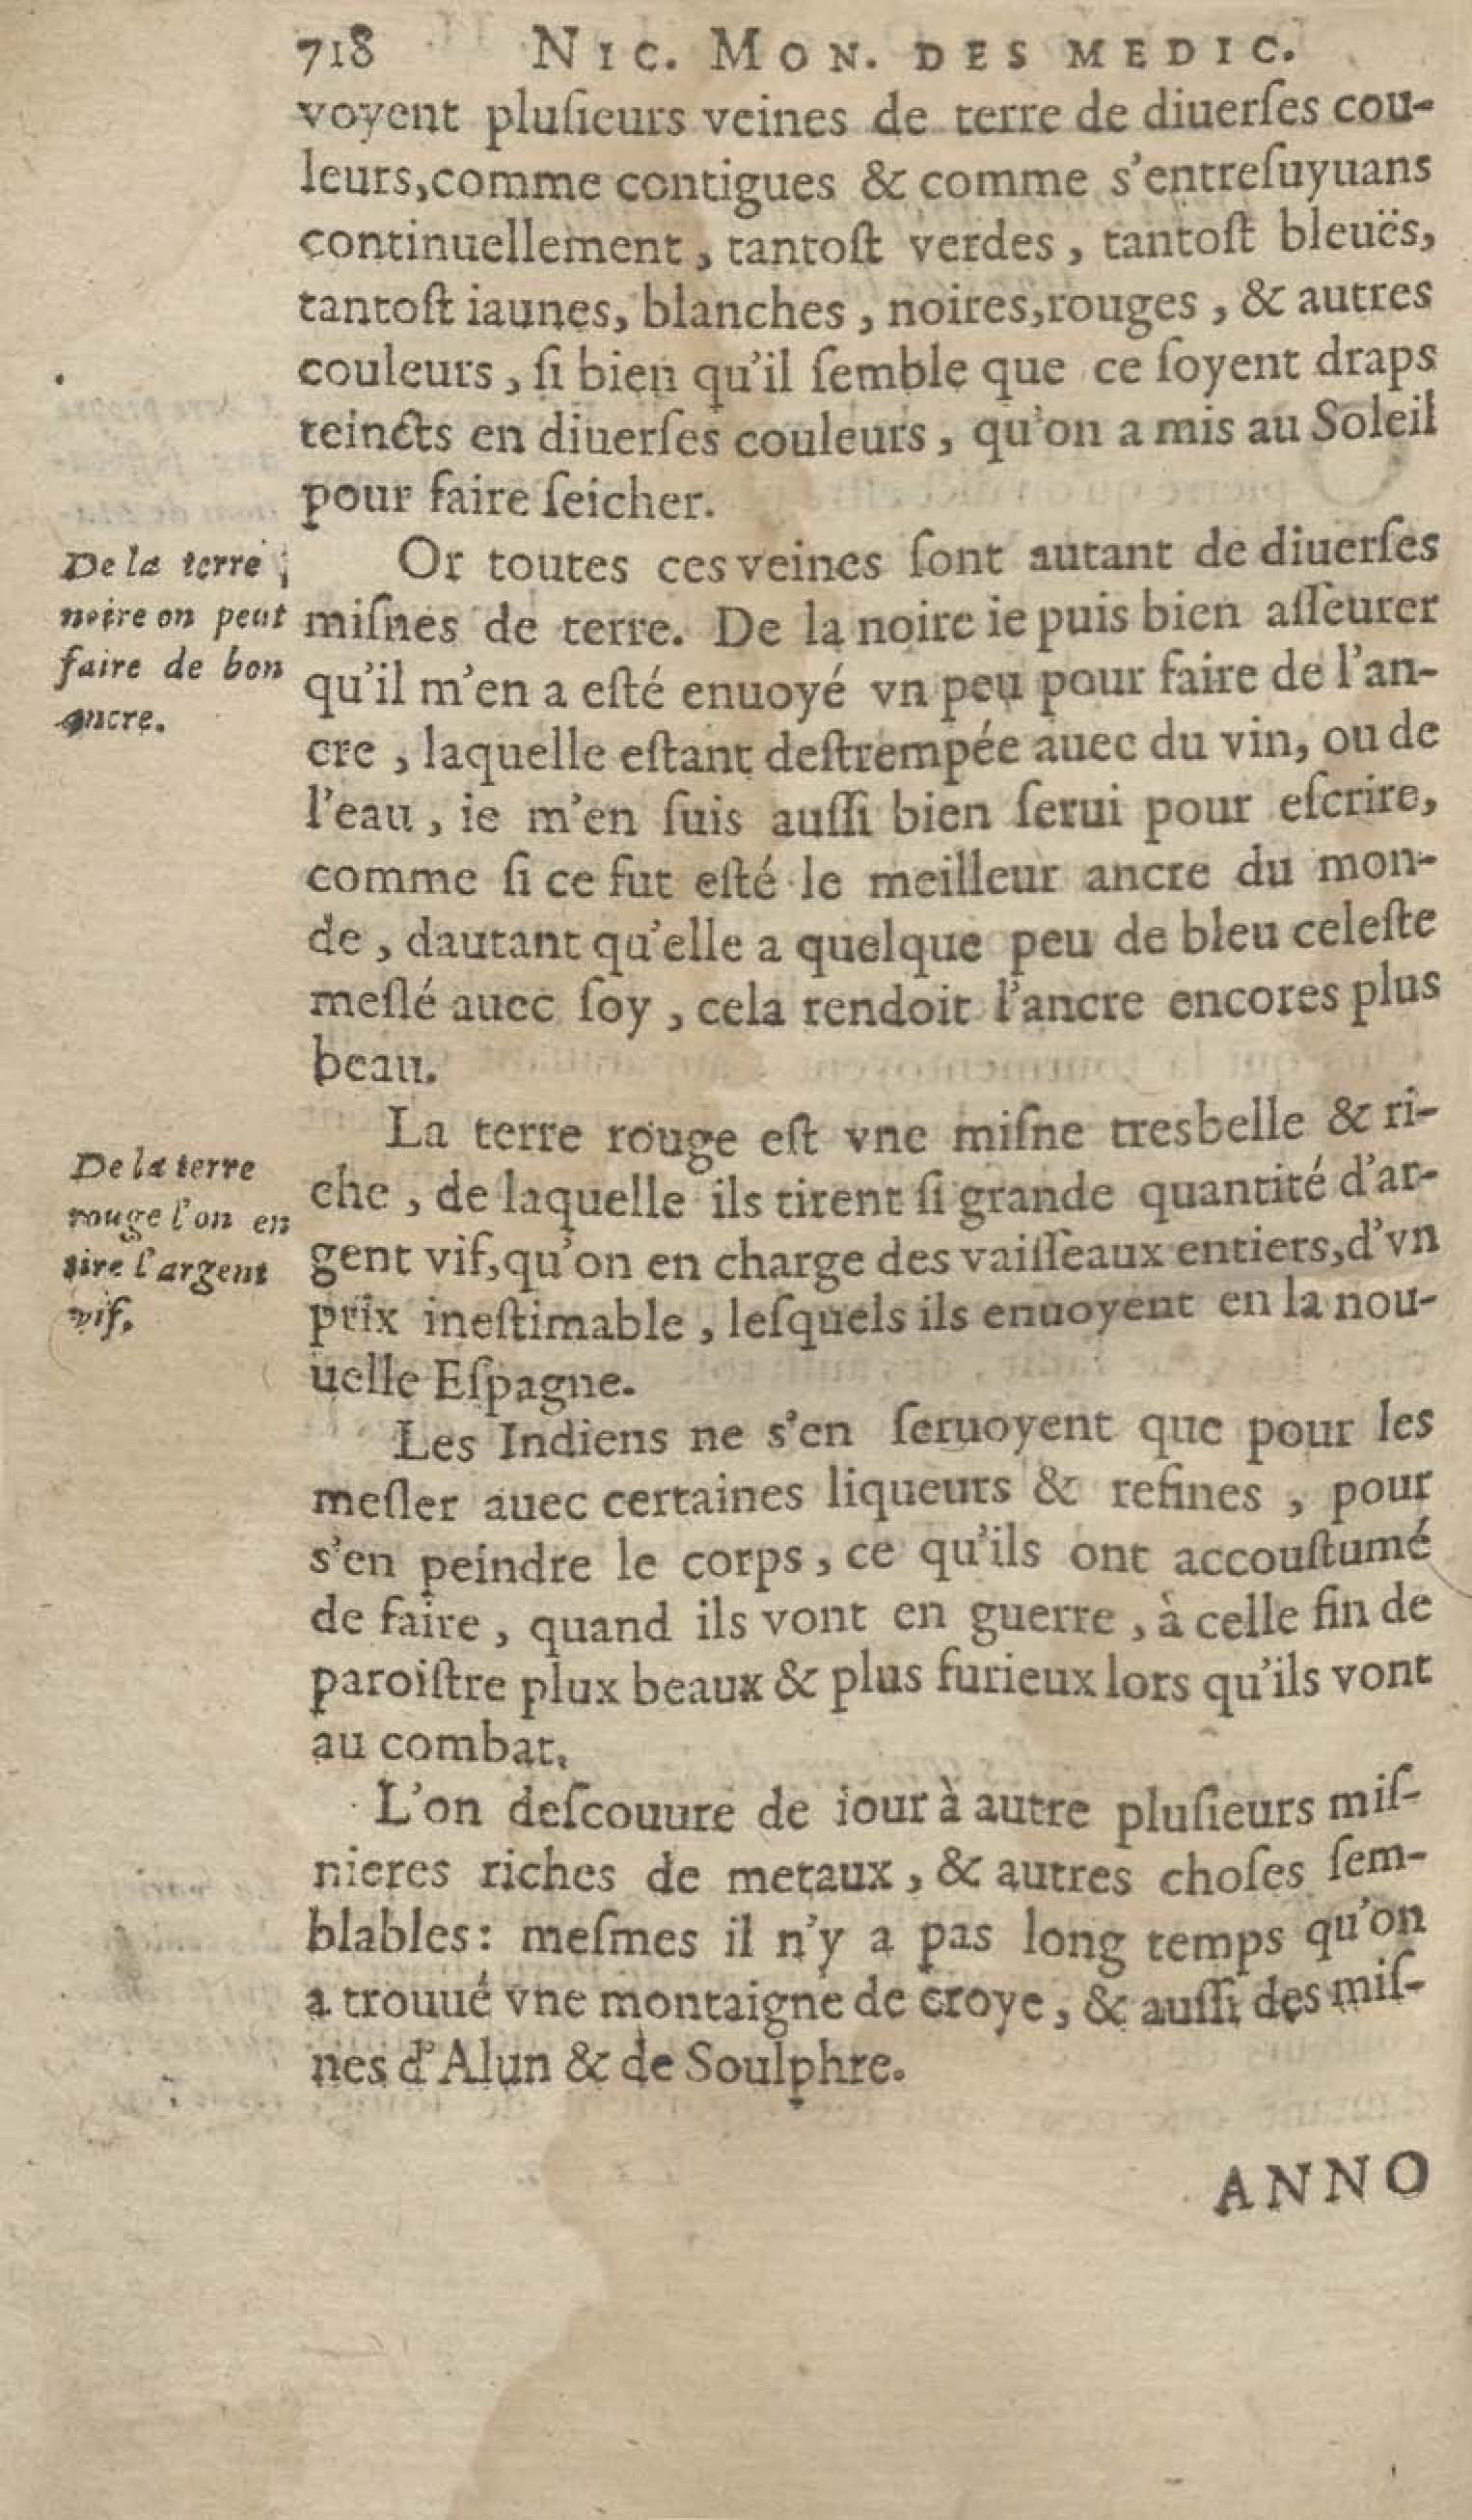 718 NIC. MON. DES MEDIC.
voyent pluſieurs veines de terre de diuerſes cou-
leurs,comme contigues & comme s'entreſuyuans
continuellement , tantoſt verdes , tantoſt bleuës,
tantoſt iaunes, blanches , noires,rouges , & autres
couleurs , ſi bien qu'il ſemble que ce ſoyent draps
teincts en diuerſes couleurs , qu'on a mis au Soleil
pour faire ſeicher.
De la terre
noire on peut
faire de bon
ancre.
Or toutes ces veines ſont autant de diuerſes
miſnes de terre. De la noire ie puis bien aſſeurer
qu'il m'en a eſté enuoyé vn peu pour faire de l'an-
cre , laquelle eſtant deſtrempée auec du vin, ou de
l'eau , ie m'en ſuis auſſi bien ſerui pour eſcrire,
comme ſi ce fut eſté le meilleur ancre du mon-
de , dautant qu'elle a quelque peu de bleu celeſte
meſlé auec ſoy , cela rendoit l'ancre encores plus
beau.
De la terre
rouge l'on en
tire l'argent
vif.
La terre rouge eſt vne miſne tresbelle & ri-
che , de laquelle ils tirent ſi grande quantité d'ar-
gent vif,qu'on en charge des vaiſſeaux entiers,d'vn
prix ineſtimable , leſquels ils enuoyent en la nou-
uelle Eſpagne.
Les Indiens ne s'en ſeruoyent que pour les
meſler auec certaines liqueurs & reſines , pour
s'en peindre le corps , ce qu'ils ont accouſtumé
de faire , quand ils vont en guerre , à celle fin de
paroiſtre plux beaux & plus furieux lors qu'ils vont
au combat.
L'on deſcouure de iour à autre pluſieurs miſ-
nieres riches de metaux , & autres choſes ſem-
blables: meſmes il n'y a pas long temps qu'on
a trouué vne montaigne de croye , & auſſi des miſ-
nes d'Alun & de Soulphre.
ANNO